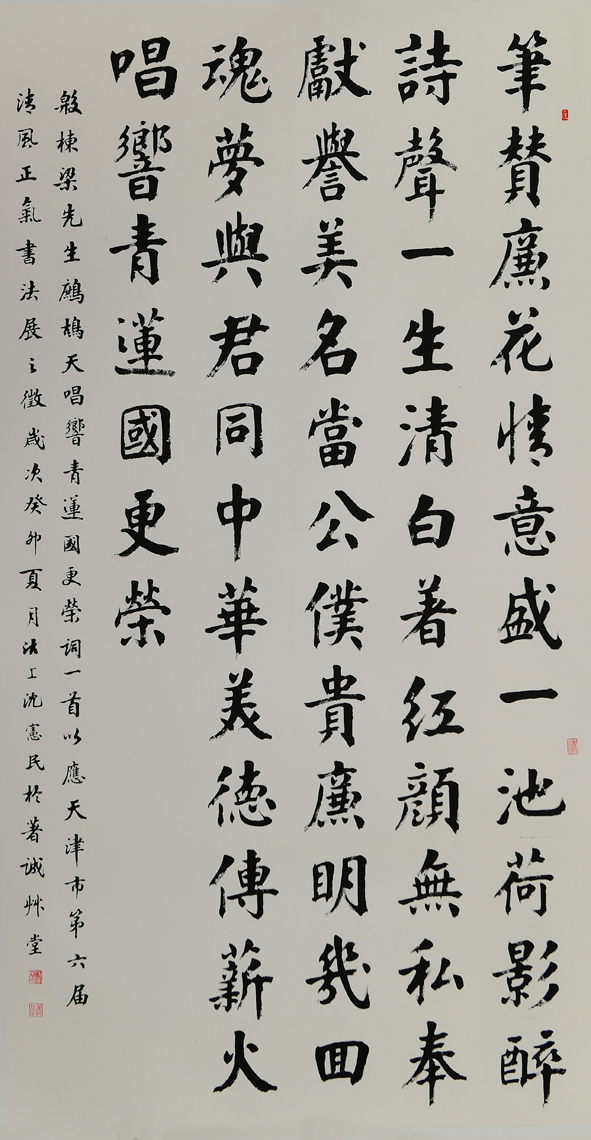 筆贊廉花情意盛一池荷影醉
詩聲一生清白著紅顏無私奉
獻譽美名當公僕貴廉明幾回
魂夢與君同中華美德傳薪火
唱響青蓮國更榮
殷棟梁先生鷓鴣天唱響青蓮國更榮詞一首以應天津市第六届
清風正氣書法展之徵歲次癸卯夏月沽上沈憲民於著誠艸堂